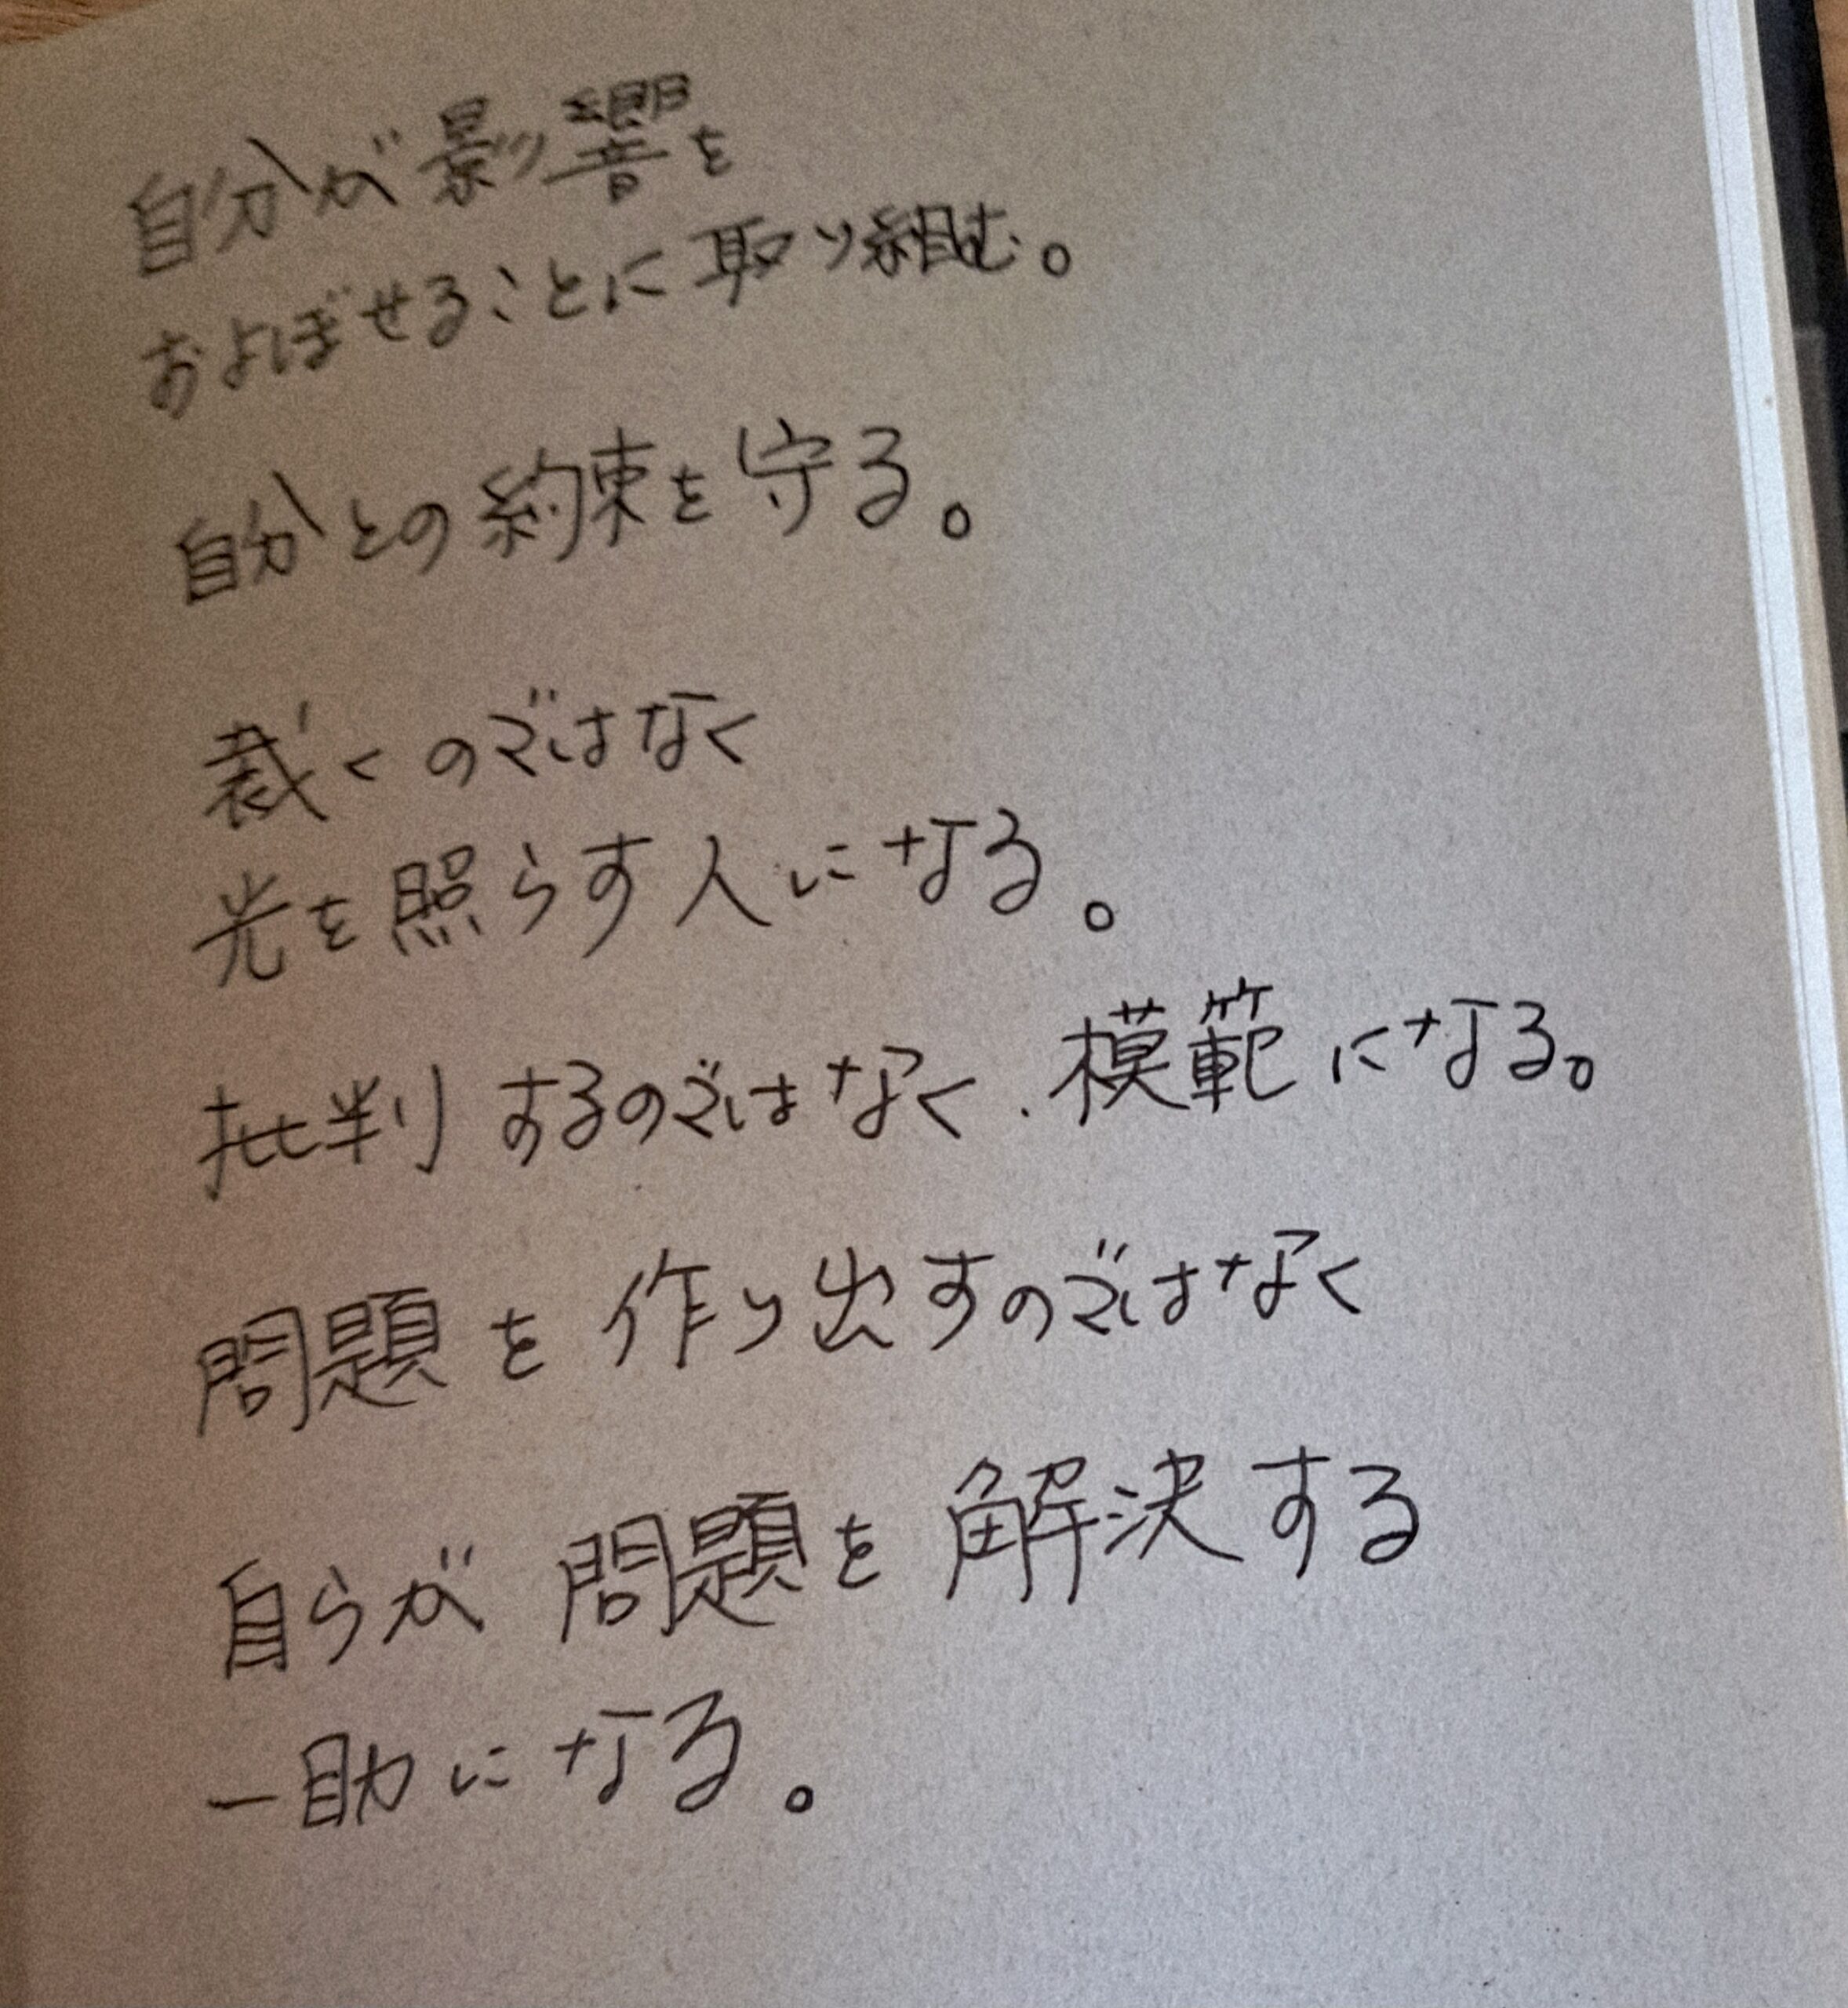 自分が影響を
およぼせることに取り組む。
自分との約束を守る。
裁くのではなく
光を照らす人になる。
批判するのではなく、模範になる。
問題を作り出すのではなく
自らが問題を解決する
一助になる。